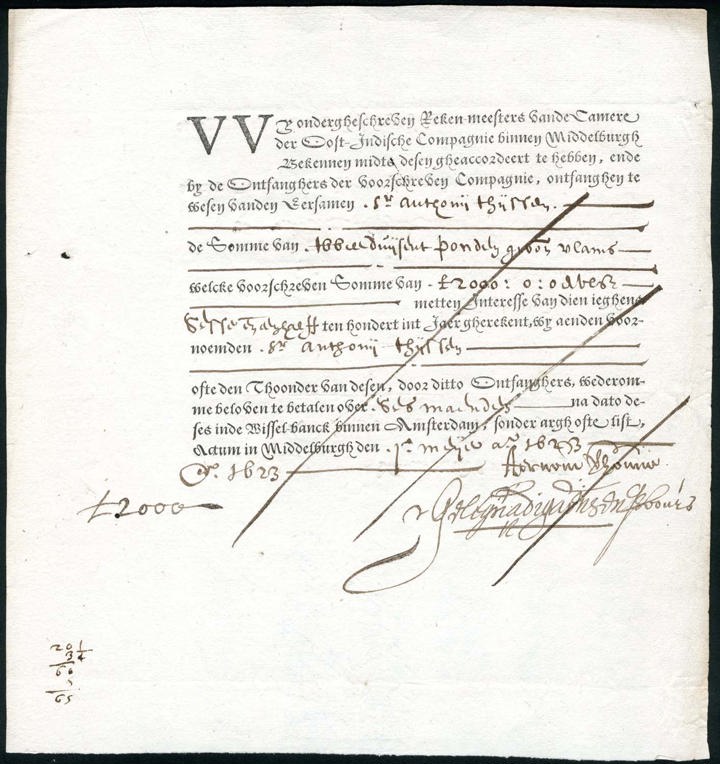 VVy ondergheschreven Reken-meesters vande Camere
der Oost-Indische Compagnie binnen Middelburgh
Bekennen midts desen gheaccordeert te hebben, ende
by de Ontfanghers der voorschreven Compagnie, ontfanghen te
wesen vanden Eersamen Sr anthonij thijssen
de Somme van tweeduijsent ponden groon vlams
welcke voorschreven Somme van £2000:0:0
metten Interesse van dien ieghens
ten hondert int Jaer gherekent, wy aenden voor-
noemden Sr anthonij thijssen
ofte den Thoonder van desen, door ditto Ontfanghers, wederom-
me beloven te betalen over ses maenden na dato de-
ses inde Wissel-banck binnen Amsterdam, sonder argh ofte list,
Actum in Middelburgh den meije ao 1623
1623
£2000
20 1/4
3
60
5
65